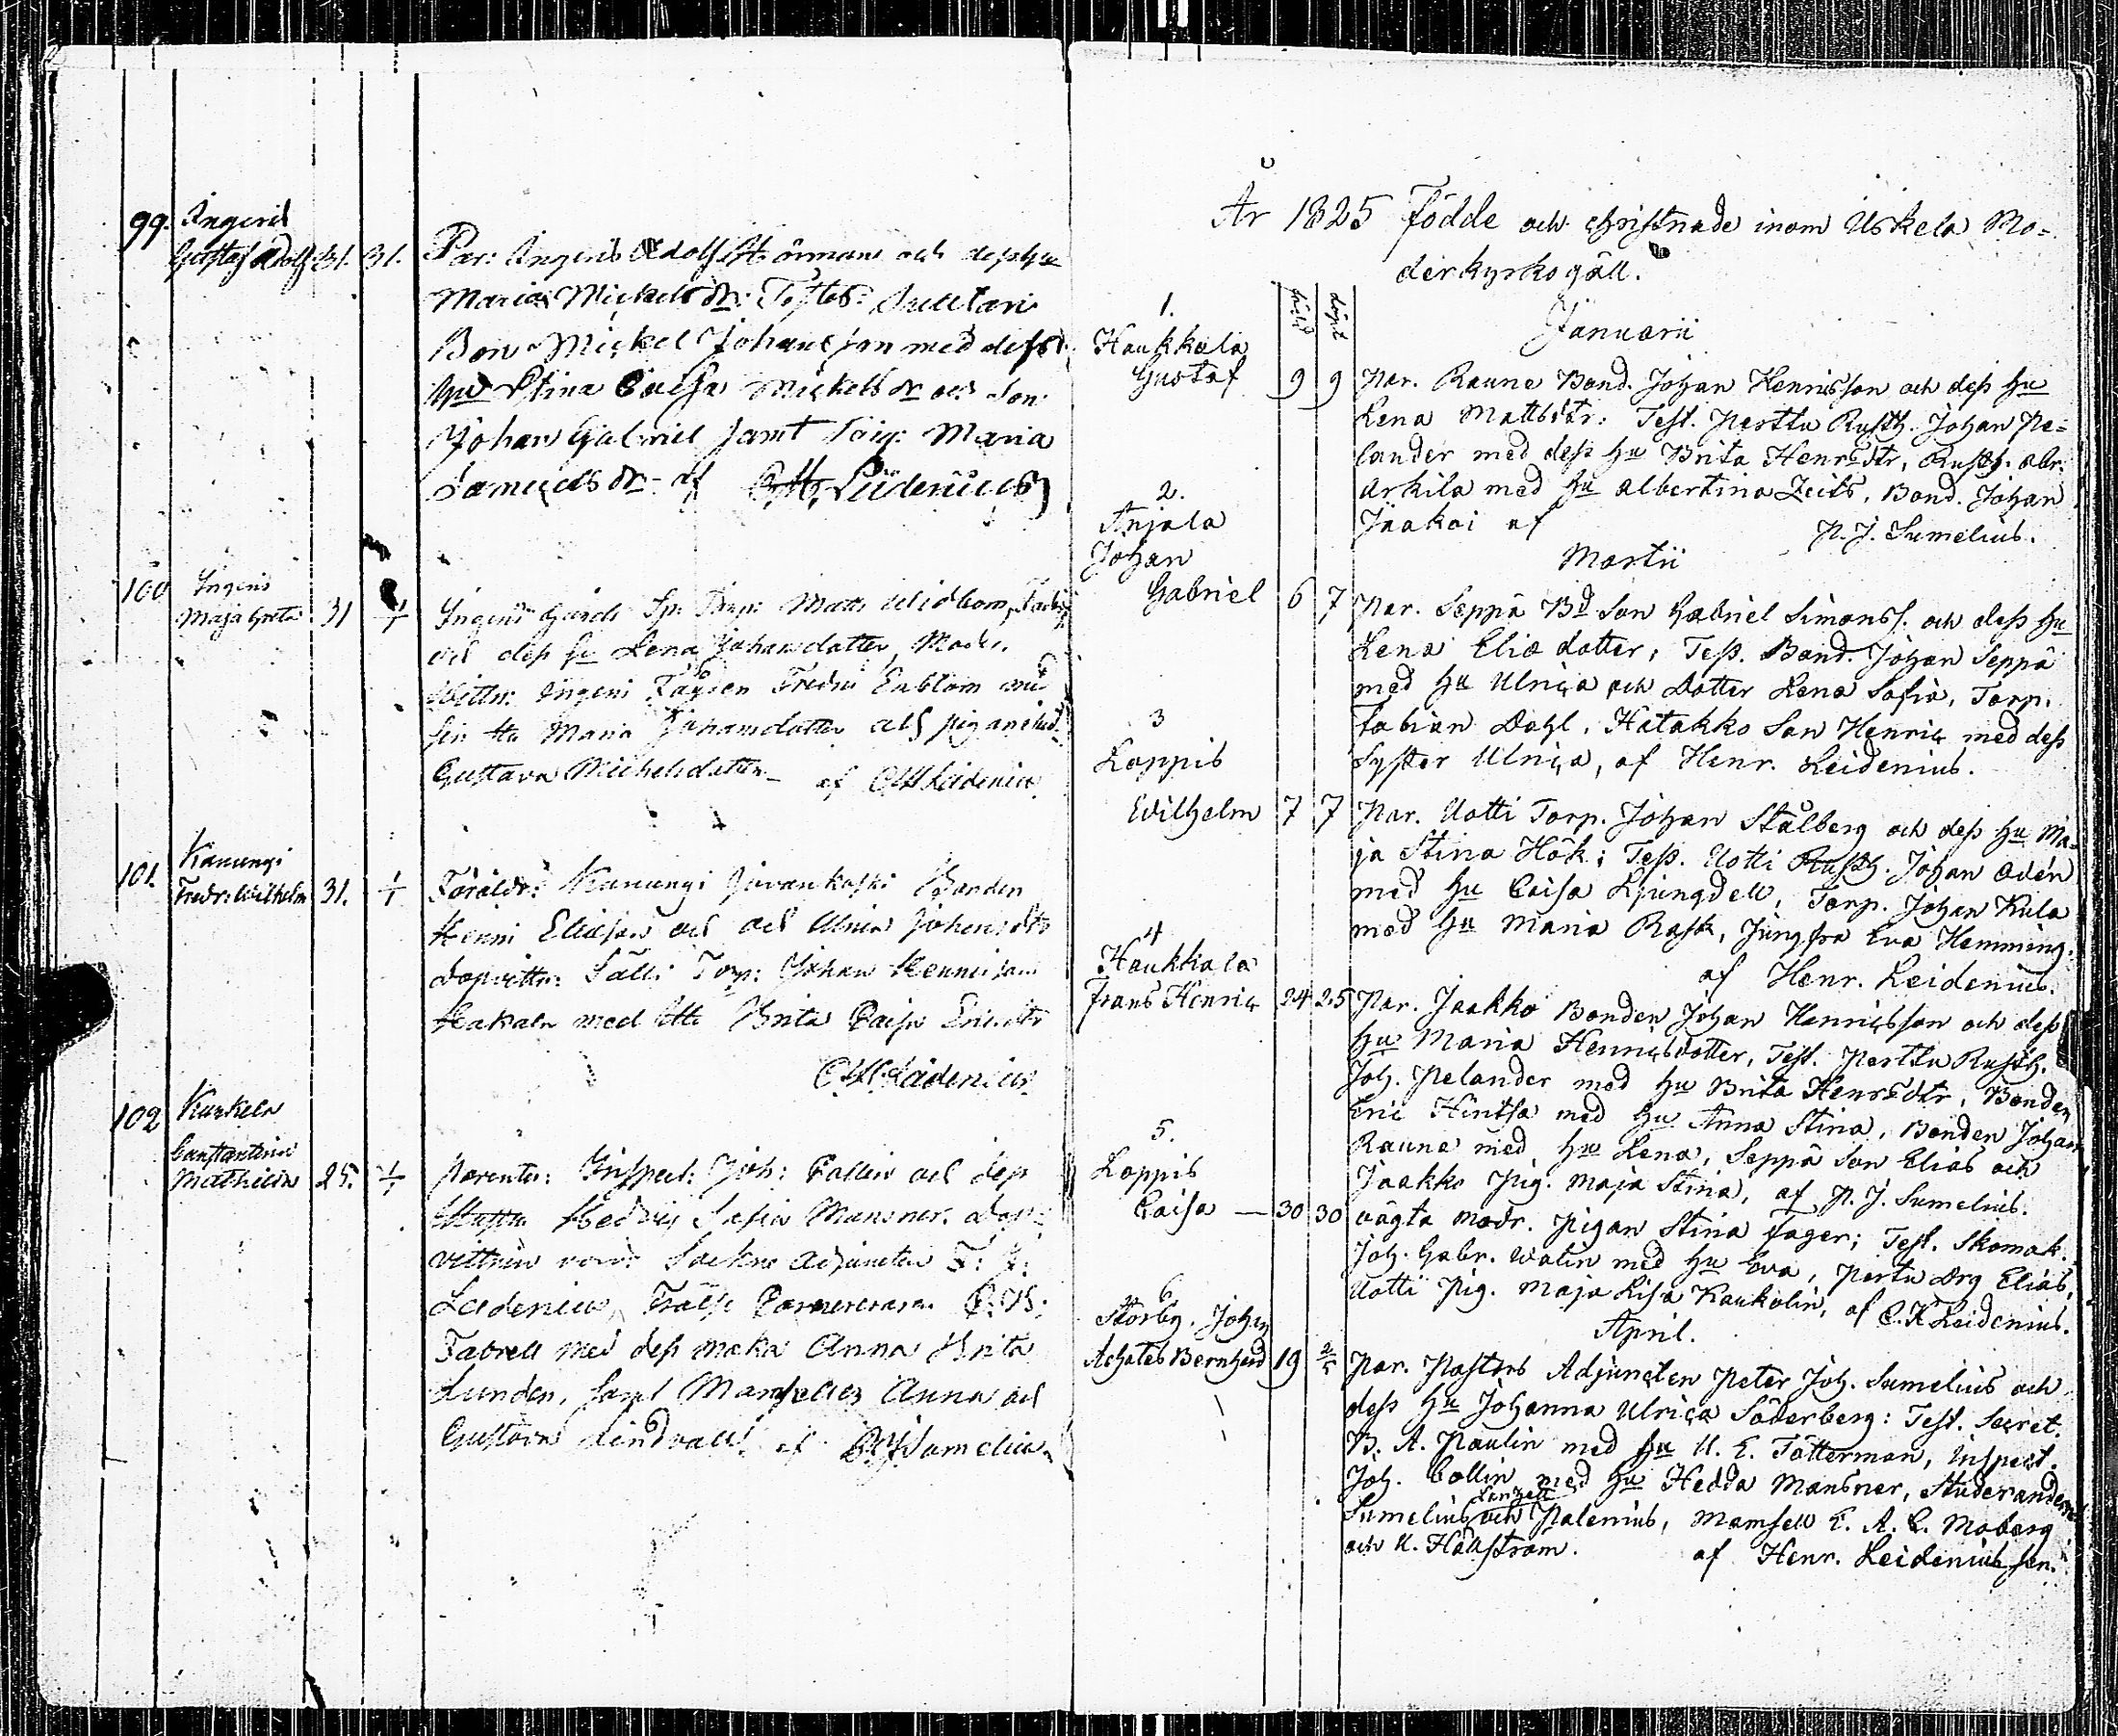 99. Ingeris
Gustaf Adolf 31. 31. Par: Ingeris Adolf Strömman och dess Hu
Maria Mickelsdr: Testes:
Bon. Mickel Johansson med dess
Hu Stina Caisa Mickelsdr och Son
Johan Gabriel samt Pig: Maria
Samuelsdr - af C. H. Leidenius
100 Ingeris
Maja Greta 31 1/1 Ingeris Gårds Torp: Matts Widbom, Fader,
och dess Hu Lena Johansdotter, Moder.
Vittn: Ingeris Fredric Enblom med
sin Hu Maria Johansdotter
Gustava Michelsdotter - af C H Leidenius
101. Kanungi
Fredr: Wilhelm 31. 1/1 Föräldr: Kanungi Juvankoski Bonden
Henric Eliasson och Ulrica Johansdtr
Dopvittn: Sälli Torp: Johan Henricsson
med Hu Brita Caisa Ericsdtr
C. H. Leidenius
102 Kurkela
Constantina
Mathilda 25. 1/1 Parentes: Inspect: Joh: Collin och dess
Hustru Hedvig Sofia Mansner. Dop-
vittnen voro: Sockne Adjuncten
Leidenius,
Fabrell med dess maka Anna Brita
Lunden, samt Mamseller Anna och
Gustava Lindvall. af P. J. Sumelius
År 1825 Födde och Christnade inom Uskela Mo-
derkyrkogäll.
född döpt
Januarii
1.
Haukkala
Gustaf 9 9 Par. Raune Bond. Johan Henricsson och dess Hu
Lena Mattsdtr: Test. Perttu Rusth. Johan Pe-
lander med dess Hu Brita Henrsdtr, Rusth. Abr.
Arkila med Hu Albertina Zeits, Bond. Johan
Jaakoi af P. J. Sumelius.
Martii
2.
Anjala
Johan
Gabriel 6 7 Par. Seppä Bd Son Gabriel Simonss. och dess Hu
Lena Eliædotter; Test. Bond. Johan Seppä
med Hu Ulrica och Dotter Lena Sofia, Torp.
Fabian Dahl, Hatakko Son Henric med dess
Syster Ulrica, af Henr. Leidenius.
3
Loppis
Wilhelm 7 7 Par. Uotti Torp. Johan Stålberg och dess Hu Ma-
ja Stina Hök; Test. Uotti Rusth. Johan Odén
med Hu Caisa Ljungdell, Torp. Johan Kula
med Hu Maria Rask, Jungfru Eva Hemming.
af Henr. Leidenius.
4
Haukkala
Frans Henric 24 25 Par. Jaakko Bonden Johan Henricsson och dess
Hu Maria Henricsdotter, Test. Perttu Rusth.
Joh. Pelander med Hu Brita Henrsdtr, Bonden
Eric Hintsa med Hu Anna Stina, Bonden Johan
Raune med Hu Lena, Seppä Son Elias och
Jaakko Pig. Maja Stina, af P. J. Sumelius.
5.
Loppis
Caisa — 30 30 oägta Modr. Pigan Stina Fager; Test. Skomak.
Joh. Gabr. Walin med Hu Eva, Pertu Drg Elias,
Uotti Pig. Maja Lisa Kaukolin, af C. H Leidenius.
April.
6.
Storby. Johan
Achates Bernhard 19 2/5 Par. Pastors Adjuncten Peter Joh. Sumelius och
dess Hu Johanna Ulrica Söderberg: Test. Secret.
B. A. Paulin med Hu U. E. Tötterman, Inspect.
Joh. Collin med Hu Hedda Mansner, Studerandena
Sumelius och Palenius, Mamsell E. A. C. Moberg
och U. Hällström. af Henr. Leidenius sen.